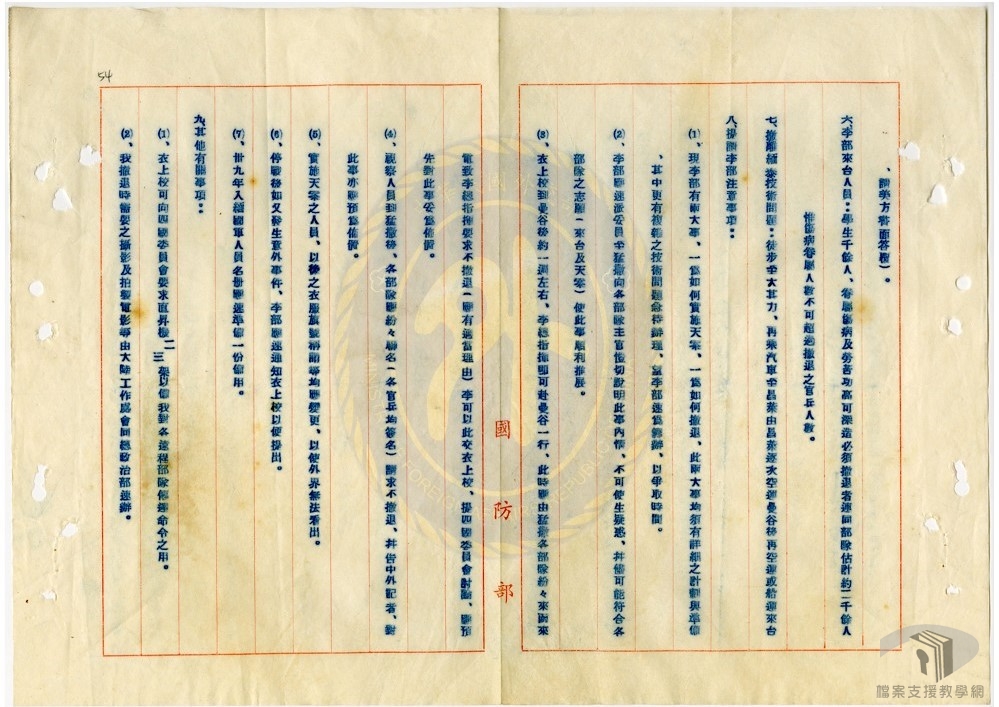 、請美方書面答覆)。
六、李部來台人員:學生千餘人、眷屬傷病及勞苦功高可深造必須撤退者連同部隊估計約二千餘人
惟傷病眷屬人數不可超過撤退之官兵人數。
七、撤離緬泰技術問題:徒步至大其力、再乘汽車至昌萊由昌萊逐次空運曼谷後再空運或船運來台
八、提請李部注意事項:
(1)、現李部有兩大事、一為如何實施天案、一為如何撤退、此兩大事均須有詳細之計劃與準備
、其中更有複雜之技術問題急待辦理、望李部速為籌辦、以爭取時間。
(2)、李部應速派妥員至猛撒向各部隊主官懇切說明此事內情、不可使生疑惑、并儘可能符合各
部隊之志願(來台及天案)使此事順利推展。
(3)、衣上校到曼谷後約一週左右、李總指揮即可赴曼谷一行、此時應由猛撒各部隊紛々來函來
電致李總指揮要求不撤退(應有適當理由)李可以此交衣上校、提四國委員會討論、應預
先對此事妥為佈置。
(4)、視察人員到猛撒後、各部隊應紛々聯名(各官兵均簽名)請求不撤退、并告中外記者、對
此事亦應預為佈置。
(5)、實施天案之人員、以後之衣服旗號稱謂等均應變更、以使外界無法看出。
(6)、停戰後如又發生意外事件、李部應速通知衣上校以便提出。
(7)、卅九年入緬國軍人員名冊應速準備一份備用。
九、其他有關事項:
(1)、衣上校可向四國委員會要求直昇機二三架以備我對各遠程部隊傳達命令之用。
(2)、我撤退時需要之攝影及拍製電影等由大陸工作處會同總政治部速辦。
國防部
54
檔案支援教學網